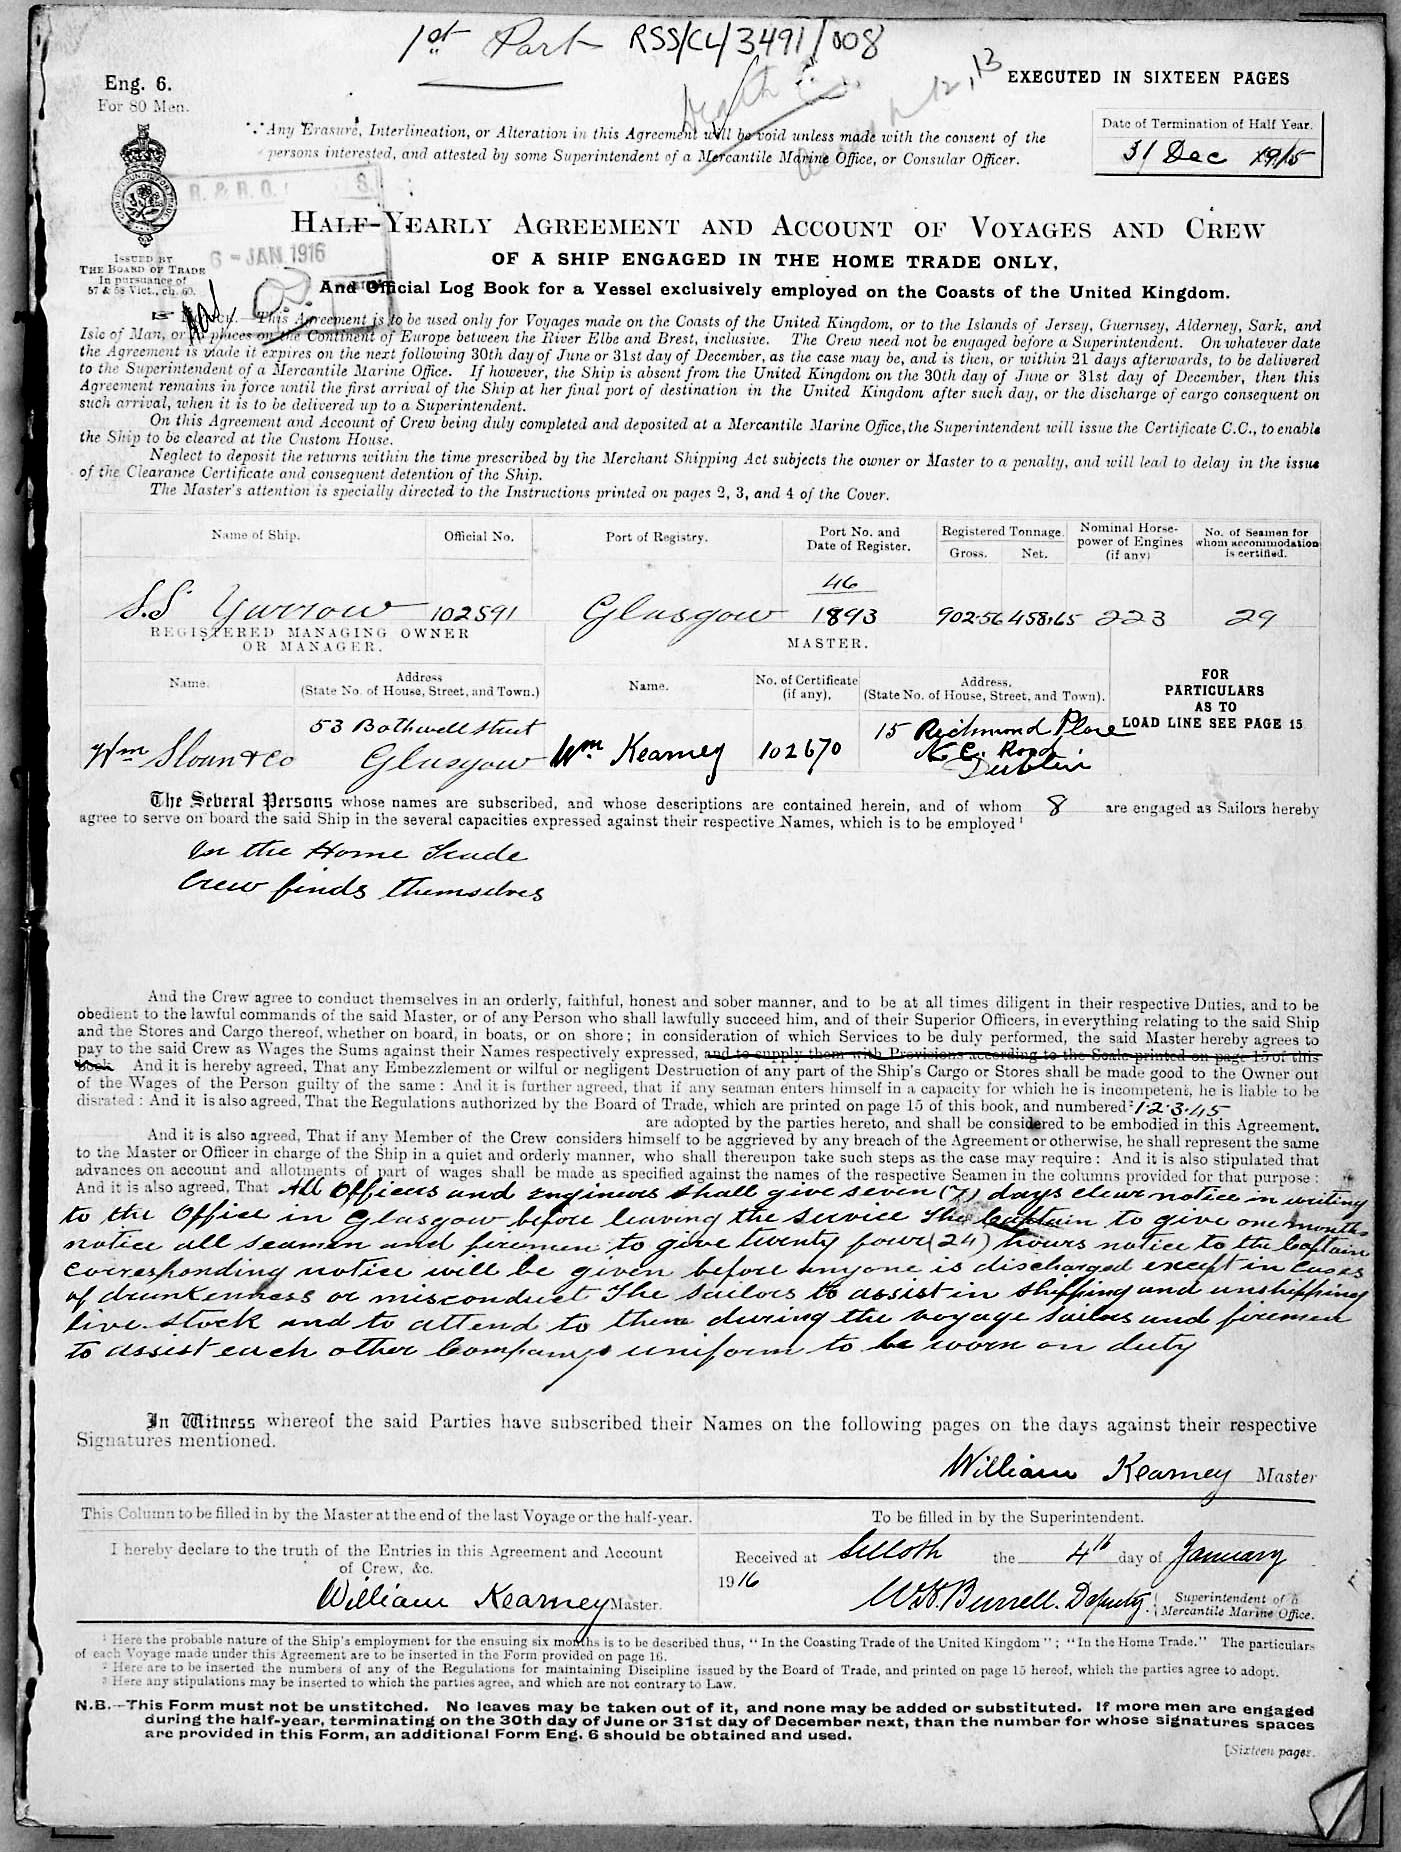 1st Part RSS/CL/3491/008
Eng. 6.
For 80 Men.
12, 13
EXECUTED IN SIXTEEN PAGES
∵ Any Erasure, Interlineation, or Alteration in this Agreement will be void unless made with the consent of the
persons interested, and attested by some Superintendent of a Mercantile Marine Office, or Consular Officer.
Date of Termination of Half Year.
31 Dec 1915
6 - JAN 1916
ISSUED BY
THE BOARD OF TRADE
In pursuance of
57 & 58 Vict., ch. 60.
HALF-YEARLY AGREEMENT AND ACCOUNT OF VOYAGES AND CREW
OF A SHIP ENGAGED IN THE HOME TRADE ONLY,
And Official Log Book for a Vessel exclusively employed on the Coasts of the United Kingdom.
This Agreement is to be used only for Voyages made on the Coasts of the United Kingdom, or to the Islands of Jersey, Guernsey, Alderney, Sark, and
Isle of Man, or to places on the Continent of Europe between the River Elbe and Brest, inclusive. The Crew need not be engaged before a Superintendent. On whatever date
the Agreement is made it expires on the next following 30th day of June or 31st day of December, as the case may be, and is then, or within 21 days afterwards, to be delivered
to the Superintendent of a Mercantile Marine Office. If however, the Ship is absent from the United Kingdom on the 30th day of June or 31st day of December, then this
Agreement remains in force until the first arrival of the Ship at her final port of destination in the United Kingdom after such day, or the discharge of cargo consequent on
such arrival, when it is to be delivered up to a Superintendent.
On this Agreement and Account of Crew being duly completed and deposited at a Mercantile Marine Office, the Superintendent will issue the Certificate C.C., to enable
the Ship to be cleared at the Custom House.
Neglect to deposit the returns within the time prescribed by the Merchant Shipping Act subjects the owner or Master to a penalty, and will lead to delay in the issue
of the Clearance Certificate and consequent detention of the Ship.
The Master's attention is specially directed to the Instructions printed on pages 2, 3, and 4 of the Cover.
Name of Ship. Official No. Port of Registry. Port No. and Date of Register. Registered Tonnage. Gross. Net. Nominal Horse-power of Engines (if any) No. of Seamen for whom accommodation is certified.
S.S Yarrow 102591 Glasgow 46 1893 902.56 458.65 223 29
REGISTERED MANAGING OWNER
OR MANAGER.
MASTER.
Name. Address (State No. of House, Street, and Town.) Name. No. of Certificate (if any). Address. (State No. of House, Street, and Town).
FOR
PARTICULARS
AS TO
LOAD LINE SEE PAGE 15
Wm Sloan & Co 53 Bothwell Street Glasgow Wm Kearney 102670 15 Richmond Place N.C. Road Dublin
The Several Persons whose names are subscribed, and whose descriptions are contained herein, and of whom 8 are engaged as Sailors hereby
agree to serve on board the said Ship in the several capacities expressed against their respective Names, which is to be employed¹
In the Home Trade
Crew finds themselves
And the Crew agree to conduct themselves in an orderly, faithful, honest and sober manner, and to be at all times diligent in their respective Duties, and to be
obedient to the lawful commands of the said Master, or of any Person who shall lawfully succeed him, and of their Superior Officers, in everything relating to the said Ship
and the Stores and Cargo thereof, whether on board, in boats, or on shore; in consideration of which Services to be duly performed, the said Master hereby agrees to
pay to the said Crew as Wages the Sums against their Names respectively expressed, and to supply them with Provisions according to the Scale printed on page 15 of this
book. And it is hereby agreed, That any Embezzlement or wilful or negligent Destruction of any part of the Ship's Cargo or Stores shall be made good to the Owner out
of the Wages of the Person guilty of the same: And it is further agreed, that if any seaman enters himself in a capacity for which he is incompetent, he is liable to be
disrated: And it is also agreed, That the Regulations authorized by the Board of Trade, which are printed on page 15 of this book, and numbered² 1.2.3.4.5
are adopted by the parties hereto, and shall be considered to be embodied in this Agreement.
And it is also agreed, That if any Member of the Crew considers himself to be aggrieved by any breach of the Agreement or otherwise, he shall represent the same
to the Master or Officer in charge of the Ship in a quiet and orderly manner, who shall thereupon take such steps as the case may require: And it is also stipulated that
advances on account and allotments of part of wages shall be made as specified against the names of the respective Seamen in the columns provided for that purpose:
And it is also agreed, That All Officers and Engineers shall give seven (7) days clear notice in writing
to the Office in Glasgow before leaving the service The Captain to give one months
notice all seamen and firemen to give twenty four (24) hours notice to the Captain
corresponding notice will be given before anyone is discharged except in cases
of drunkenness or misconduct The sailors to assist in shipping and unshipping
live stock and to attend to them during the voyage sailors and firemen
to assist each other Companys uniform to be worn on duty
In Witness whereof the said Parties have subscribed their Names on the following pages on the days against their respective
Signatures mentioned.
William Kearney Master
This Column to be filled in by the Master at the end of the last Voyage or the half-year.
To be filled in by the Superintendent.
I hereby declare to the truth of the Entries in this Agreement and Account
of Crew, &c.
William Kearney Master.
Received at Silloth the 4th day of January
1916
Burrell. Deputy Superintendent of a Mercantile Marine Office.
¹ Here the probable nature of the Ship's employment for the ensuing six months is to be described thus, "In the Coasting Trade of the United Kingdom"; "In the Home Trade." The particulars
of each Voyage made under this Agreement are to be inserted in the Form provided on page 16.
² Here are to be inserted the numbers of any of the Regulations for maintaining Discipline issued by the Board of Trade, and printed on page 15 hereof, which the parties agree to adopt.
³ Here any stipulations may be inserted to which the parties agree, and which are not contrary to Law.
N.B.—This Form must not be unstitched. No leaves may be taken out of it, and none may be added or substituted. If more men are engaged
during the half-year, terminating on the 30th day of June or 31st day of December next, than the number for whose signatures spaces
are provided in this Form, an additional Form Eng. 6 should be obtained and used.
[Sixteen pages.